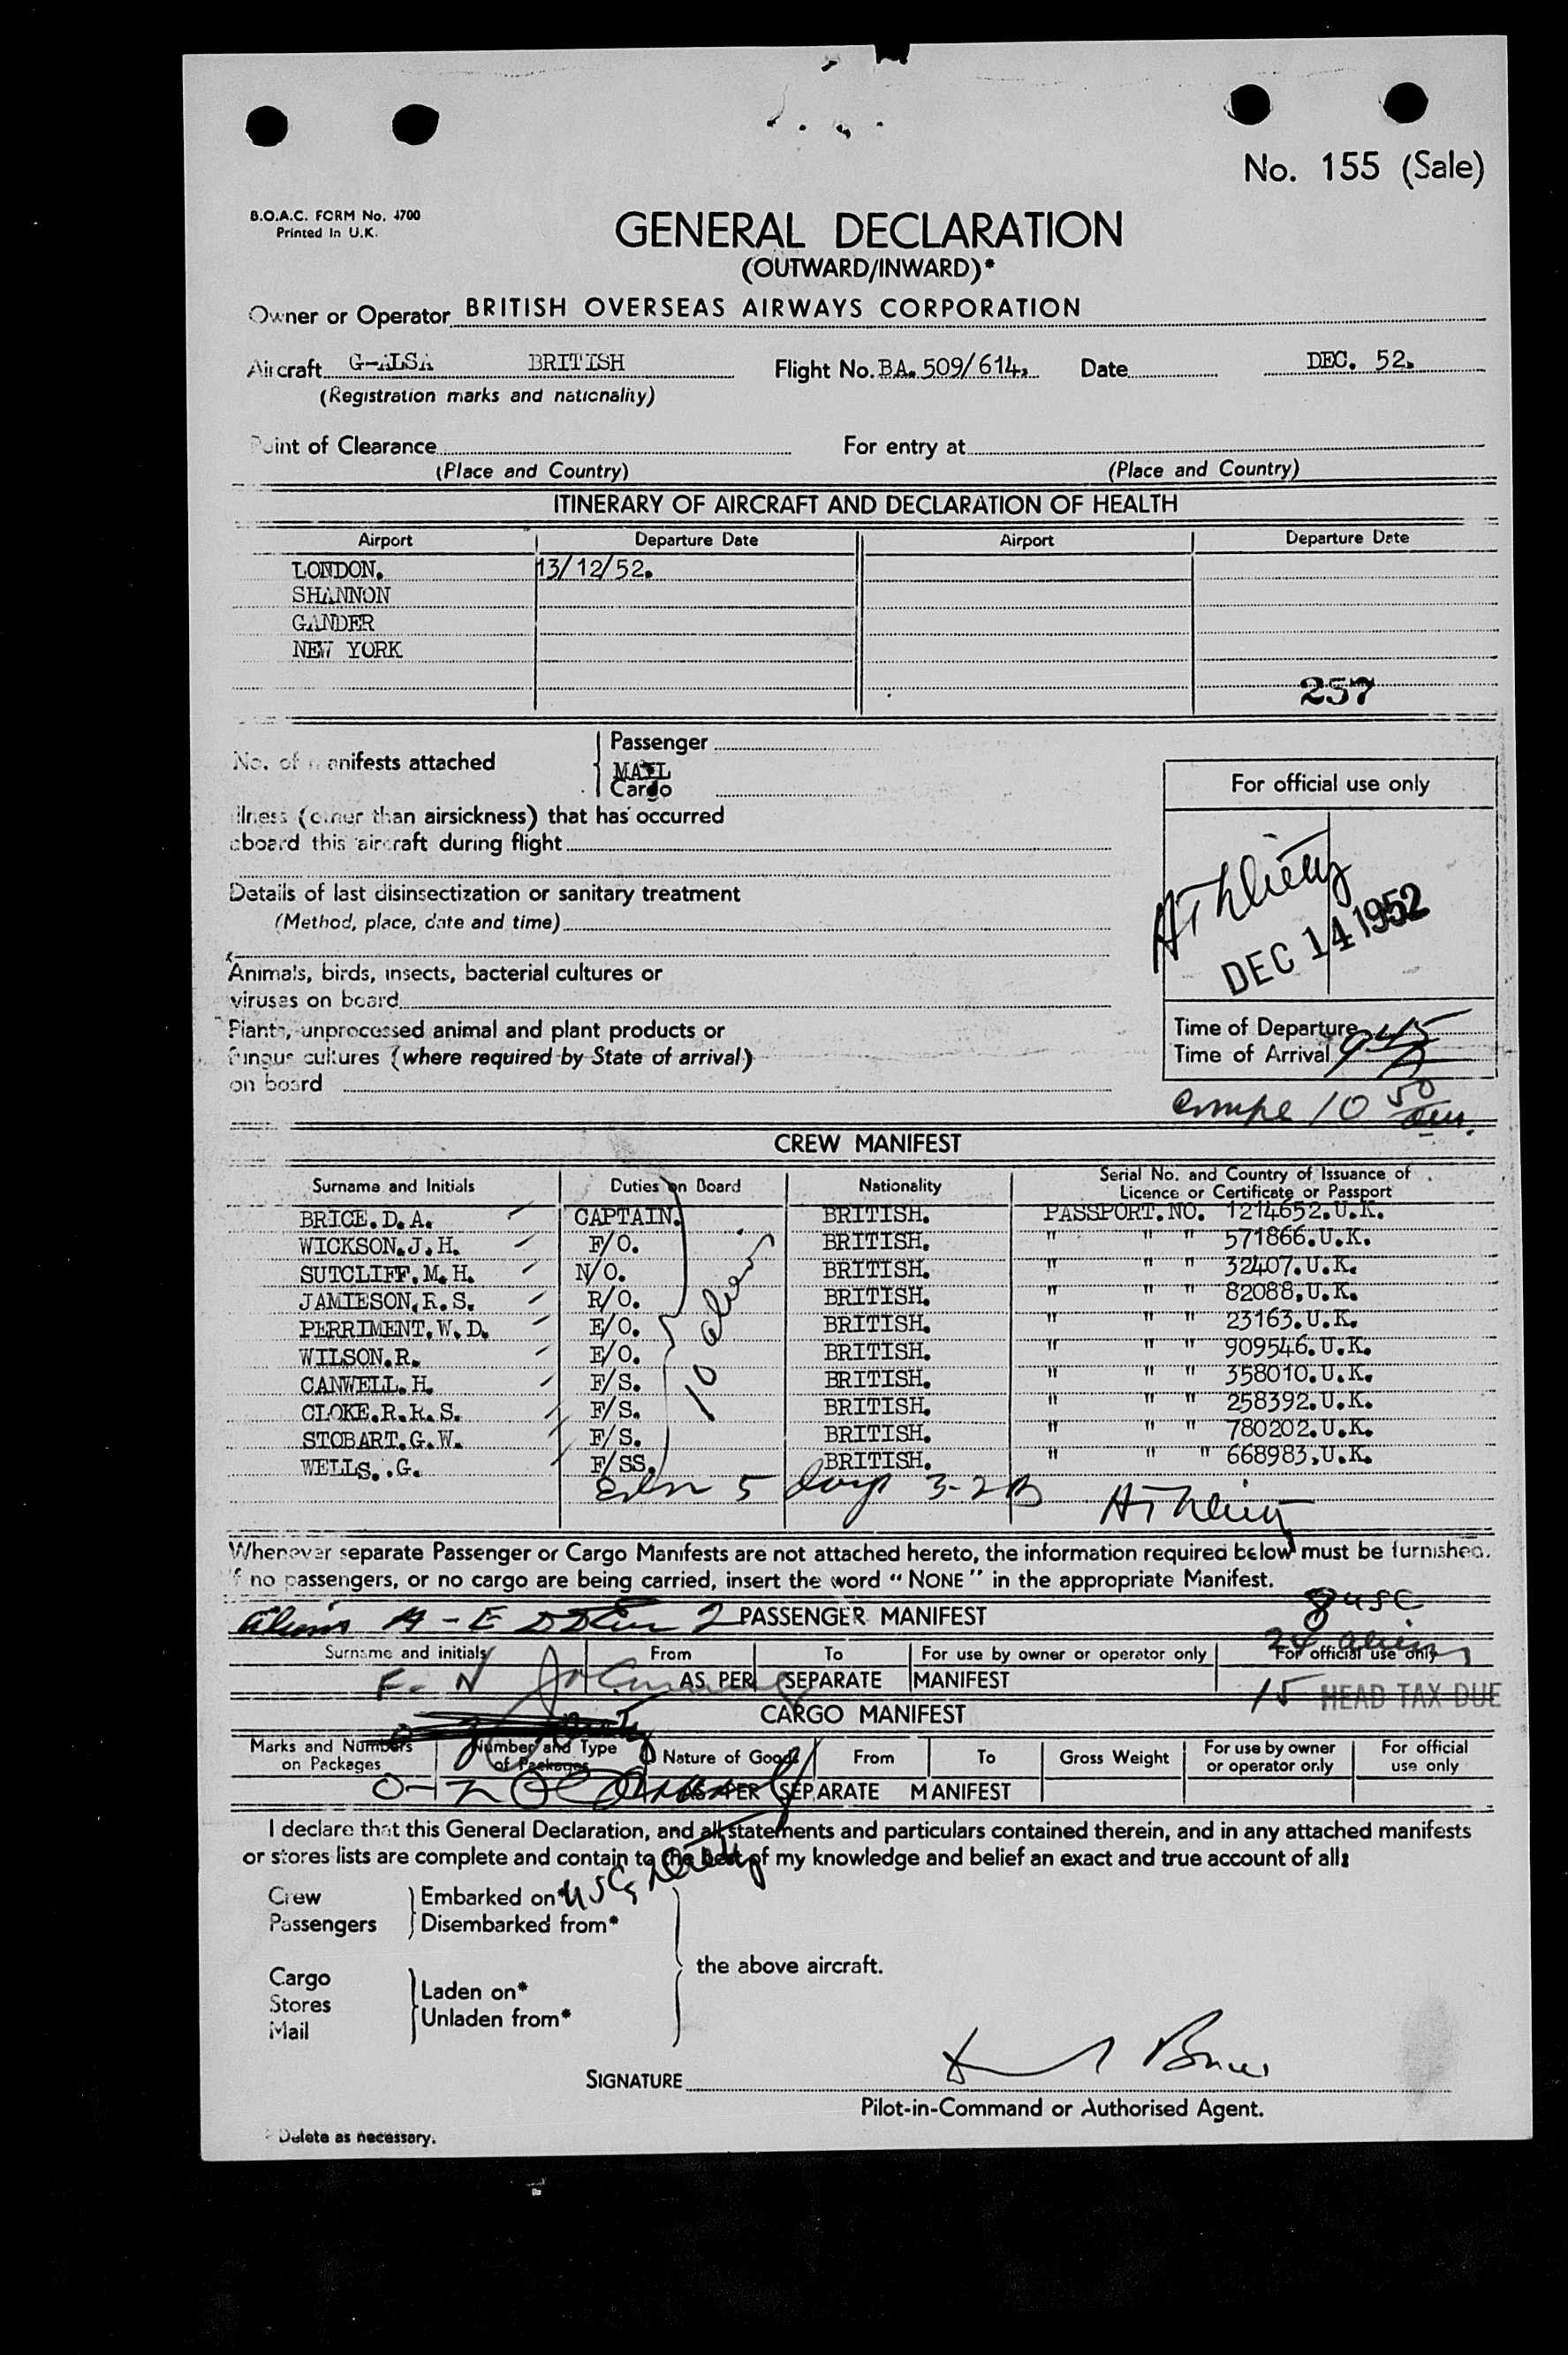 No. 155 (Sale)
B.O.A.C. FORM No. 4700
Printed In U.K.
GENERAL DECLARATION
(OUTWARD/INWARD)*
Owner or Operator BRITISH OVERSEAS AIRWAYS CORPORATION
Aircraft G-ALSA BRITISH Flight No. BA. 509/614. Date DEC. 52.
(Registration marks and nationality)
Point of Clearance For entry at
(Place and Country) (Place and Country)
ITINERARY OF AIRCRAFT AND DECLARATION OF HEALTH
Airport Departure Date Airport Departure Date
LONDON. 13/12/52.
SHANNON
GANDER
NEW YORK
257
No. of manifests attached
Passenger
MAIL
Cargo
For official use only
Illness (other than airsickness) that has occurred
aboard this aircraft during flight
Details of last disinsectization or sanitary treatment
(Method, place, date and time)
DEC 14 1952
Animals, birds, insects, bacterial cultures or
viruses on board
Plants, unprocessed animal and plant products or
fungus cultures (where required by State of arrival)
on board
Time of Departure
Time of Arrival 945
10 50
CREW MANIFEST
Surname and Initials Duties on Board Nationality Serial No. and Country of Issuance of
Licence or Certificate or Passport
BRICE. D. A. CAPTAIN. BRITISH. PASSPORT. NO. 1214652. U.K.
WICKSON. J. H. F/O. BRITISH. " " " 571866. U.K.
SUTCLIFF. M. H. N/O. BRITISH. " " " 32407. U.K.
JAMIESON. R. S. R/O. BRITISH. " " " 82088. U.K.
PERRIMENT. W. D. E/O. BRITISH. " " " 23163. U.K.
WILSON. R. E/O. BRITISH. " " " 909546. U.K.
CANWELL. H. F/S. BRITISH. " " " 358010. U.K.
CLOKE. R. K. S. F/S. BRITISH. " " " 258392. U.K.
STOBART. G. W. F/S. BRITISH. " " " 780202. U.K.
WELLS. .G. F/SS. BRITISH. " " " 668983. U.K.
10 aliens
5 days 3-2
Whenever separate Passenger or Cargo Manifests are not attached hereto, the information required below must be furnished.
If no passengers, or no cargo are being carried, insert the word “NONE” in the appropriate Manifest.
8 USC
PASSENGER MANIFEST
24 aliens
Surname and initials From To For use by owner or operator only For official use only
AS PER SEPARATE MANIFEST
15 HEAD TAX DUE
CARGO MANIFEST
Marks and Numbers on Packages Number and Type of Packages Nature of Goods From To Gross Weight For use by owner or operator only For official use only
AS PER SEPARATE MANIFEST
I declare that this General Declaration, and all statements and particulars contained therein, and in any attached manifests
or stores lists are complete and contain to the best of my knowledge and belief an exact and true account of all:
Crew Embarked on*
Passengers Disembarked from*
the above aircraft.
Cargo
Stores
Mail
Laden on*
Unladen from*
SIGNATURE
Pilot-in-Command or Authorised Agent.
* Delete as necessary.